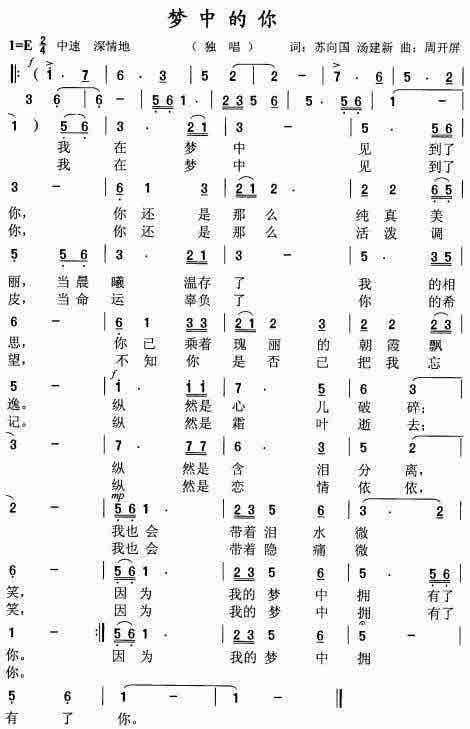 梦中的你
1=E 2/4 中速 深情地 （独唱） 词：苏向国 汤建新 曲：周开屏
f
‖: ( 1 · 7 | 6 · 3 | 5 2 | 2 · 6 |
3 6 | 6 · 1 2 | 1 · 6 | 2 2 3 5 6 | 5 · 5 6 | 1 − |
1 ) 5 6 | 3 · 2 1 | 3 − | 5 · 6 6 |
我 在 梦 中 见 到了
我 在 梦 中 见 到了
3 − | 6 1 3 | 2 1 2 · | 2 2 6 5 |
你， 你还 是那么 纯真 美
你， 你还 是那么 活泼 调
5 5 6 | 3 · 3 | 2 − | 5 · 3 5 |
丽，当晨 曦 温存 了 我 的相
皮，当命 运 辜负 了 你 的希
6 − | 6 1 3 3 | 2 1 2 3 | 2 2 2 3 |
思， 你已 乘着瑰 丽的 朝霞飘
望， 不知 你 是否已 把我忘
f
5 − | 1 · 1 1 | 7 · 5 | 6 3 |
逸。 纵 然是心 儿破碎；
记。 纵 然是霜 叶逝去；
3 − | 7 · 7 7 | 6 · 3 | 5 2 |
纵 然是含 泪分离，
纵 然是恋 情依依，
mp
2 − | 5 6 1 · | 2 2 3 5 6 | 3 · 2 |
我也会 带着泪 水 微
我也会 带着隐 痛 微
6 − | 5 6 1 · | 2 2 3 5 6 | 5 · 5 6 |
笑， 因为 我的梦 中 拥 有了
笑， 因为 我的梦 中 拥 有了
1 − :‖ 5 6 1 · | 2 2 3 5 6 | 5 − |
你。 因为 我的梦 中 拥
你。
5 6 | 1 − | 1 − ‖
有 了 你。